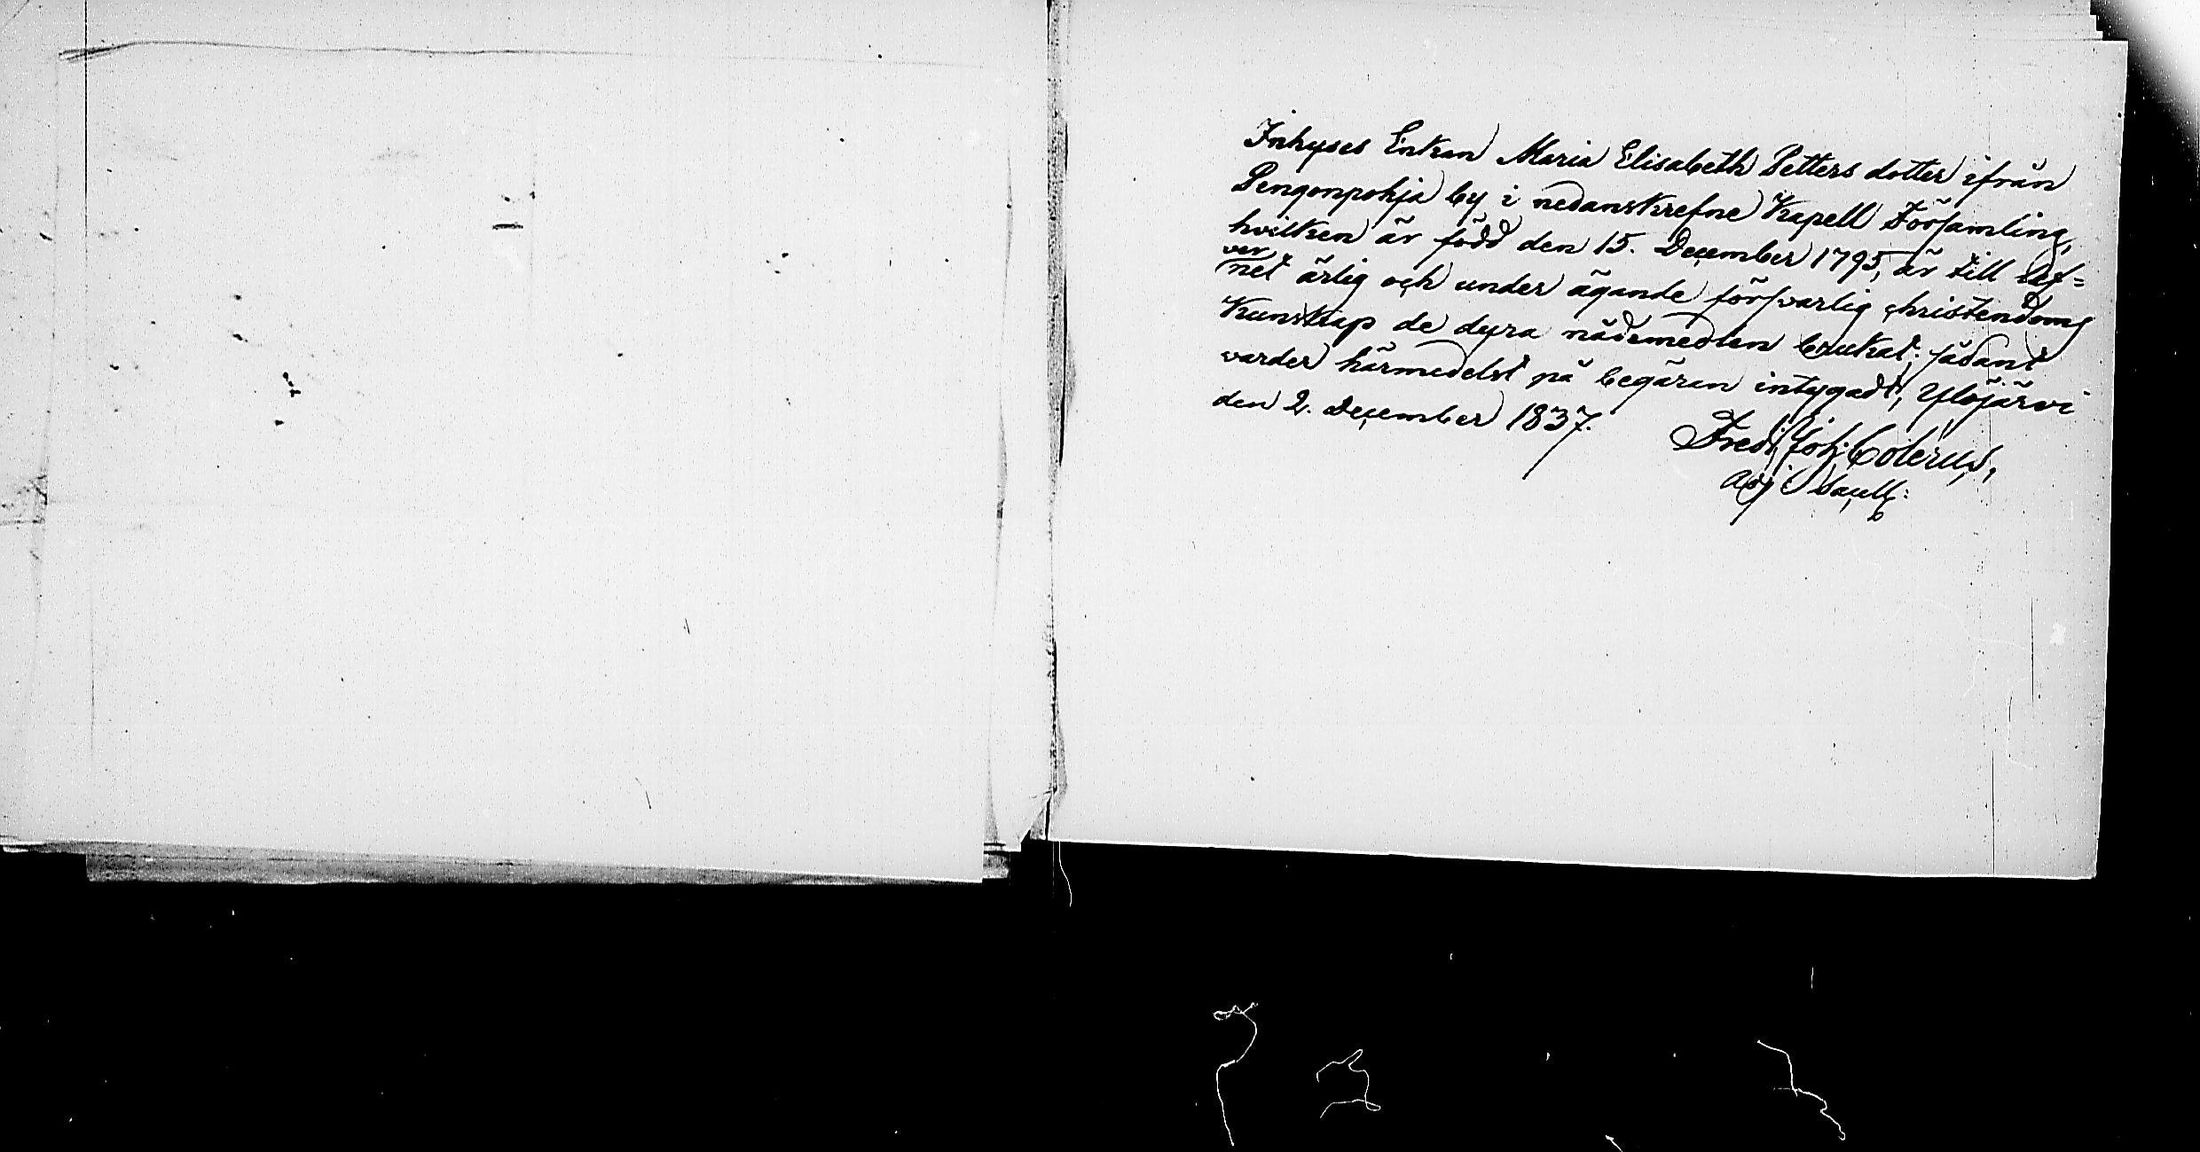 Inhyses Enkan Maria Elisabeth Petters dotter ifrån
Pengonpohja by i nedanskrefne Kapell Församling,
hvilken är född den 15. December 1795, är till lef=
ver
net ärlig och under ägande försvarlig christendoms
Kunskap de dyra nådemedlen brukat; sådant
varder härmedelst på begäran intygadt, Ylöjärvi
den 2. December 1837.
Fredr. Joh. Colerus,
Adj. Sacell: